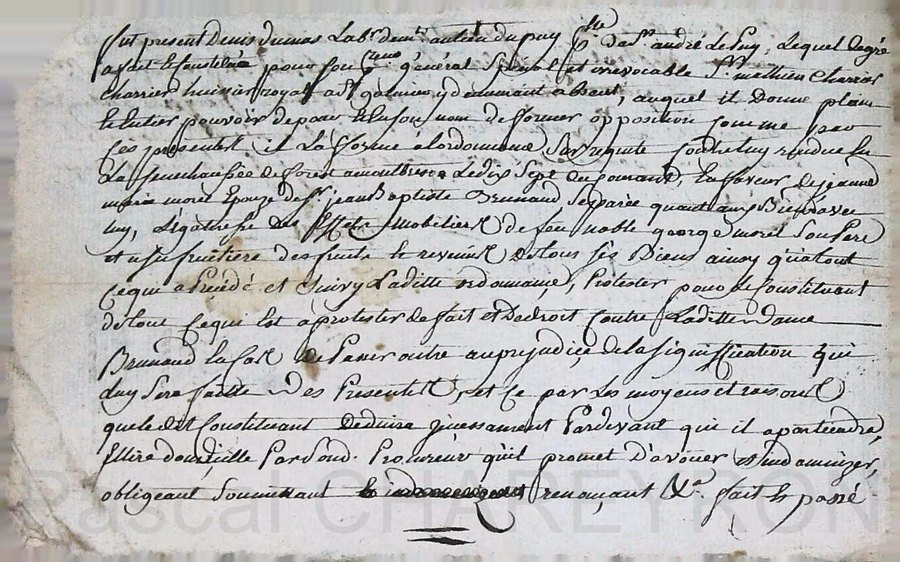 fut present denis dumas Lab.r dem.t au lieu du puy p.sse de S.t andré le Puy, Lequel de gré
a fait et constitué pour son proc.r général spécial et irrevocable S.r mathieu Charrier
charrier huissier royal a S.t galmier y demeurant absent, auquel il Donne plain
et Entier pouvoir de pour et En son nom de former opposition comme par
Ces presentes il La forme a lordonnance sur requête Sondit luy rendue En
La senechaussée de forest a montbrison Le dix Sept du Courant, En faveur de jeanne
marie morel Epouze de S.r jean Baptiste Brunand separée quant aux Biens davec
luy, Légataire des Effets mobiliers de feu noble george morel Son Pere
et usufruitiere des fruits et revenus de tous ses Biens a moy qu'a tout
Ce qui a Précédé et Suivy Laditte ordonnance, Protester pour le Constituant
de tout Ce qui Est a protester de fait et de droit Contre Laditte Dame
Brunand En Cas de Passer outre au prejudice de la signiffication qui
Luy Sera faitte des Presentes, et ce par Les moyens et raisons
que le dit Constituant Deduira incessament Pardevant qui il apartiendra,
Ellire domicille Par Sond. Procureur qu'il promet d'avouer et indamnizer,
obligeant Soumettant renonçant &.a fait et passé
Pascal CHAREYRON